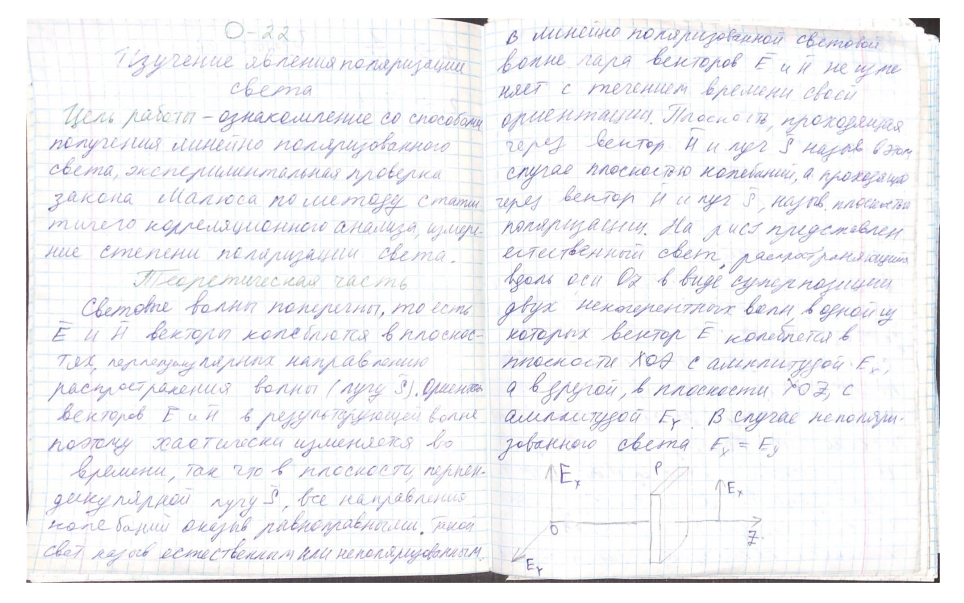 О-22
Изучение явления поляризации
света
Цель работы – ознакомление со способами
получения линейно поляризованного
света, экспериментальная проверка
закона Малюса по методу статис
тичего корреляционного анализа, измере-
ние степени поляризации света.
Теоретическая часть
Световые волны поперечны, то есть
E̅ и H̅ векторы колеблются в плоскос-
тях, перпендикулярных направлению
распространения волны (лучу S̅). Ориентац
векторов E̅ и H̅ в результирующей волне
поэтому хаотически изменяется во
времени, так что в плоскости, перпен-
дикулярной лучу S̅, все направления
колебаний оказыв равноправными. Такой
свет назыв естественным или неполяризованным.
В линейно поляризованной световой
волне пара векторов E̅ и H̅ не изме
няет с течением времени своей
ориентации. Плоскость, проходящая
через вектор H̅ и луч S̅ назыв в этом
случае плоскостью колебаний, а проходящую
через вектор H̅ и луч S̅, назыв. плоскостью
поляризации. На рис1 представлен
естественный свет, распространяющийся
вдоль оси Oz в виде суперпозиции
двух некогерентных волн, в одной из
которых вектор E̅ колеблется в
плоскости XOZ с амплитудой Eₓ;
а в другой, в плоскости YOZ, с
амплитудой Eᵧ. В случае неполяри-
зованного света Eₓ = Eᵧ
Eₓ P Eₓ
O Z
Eᵧ